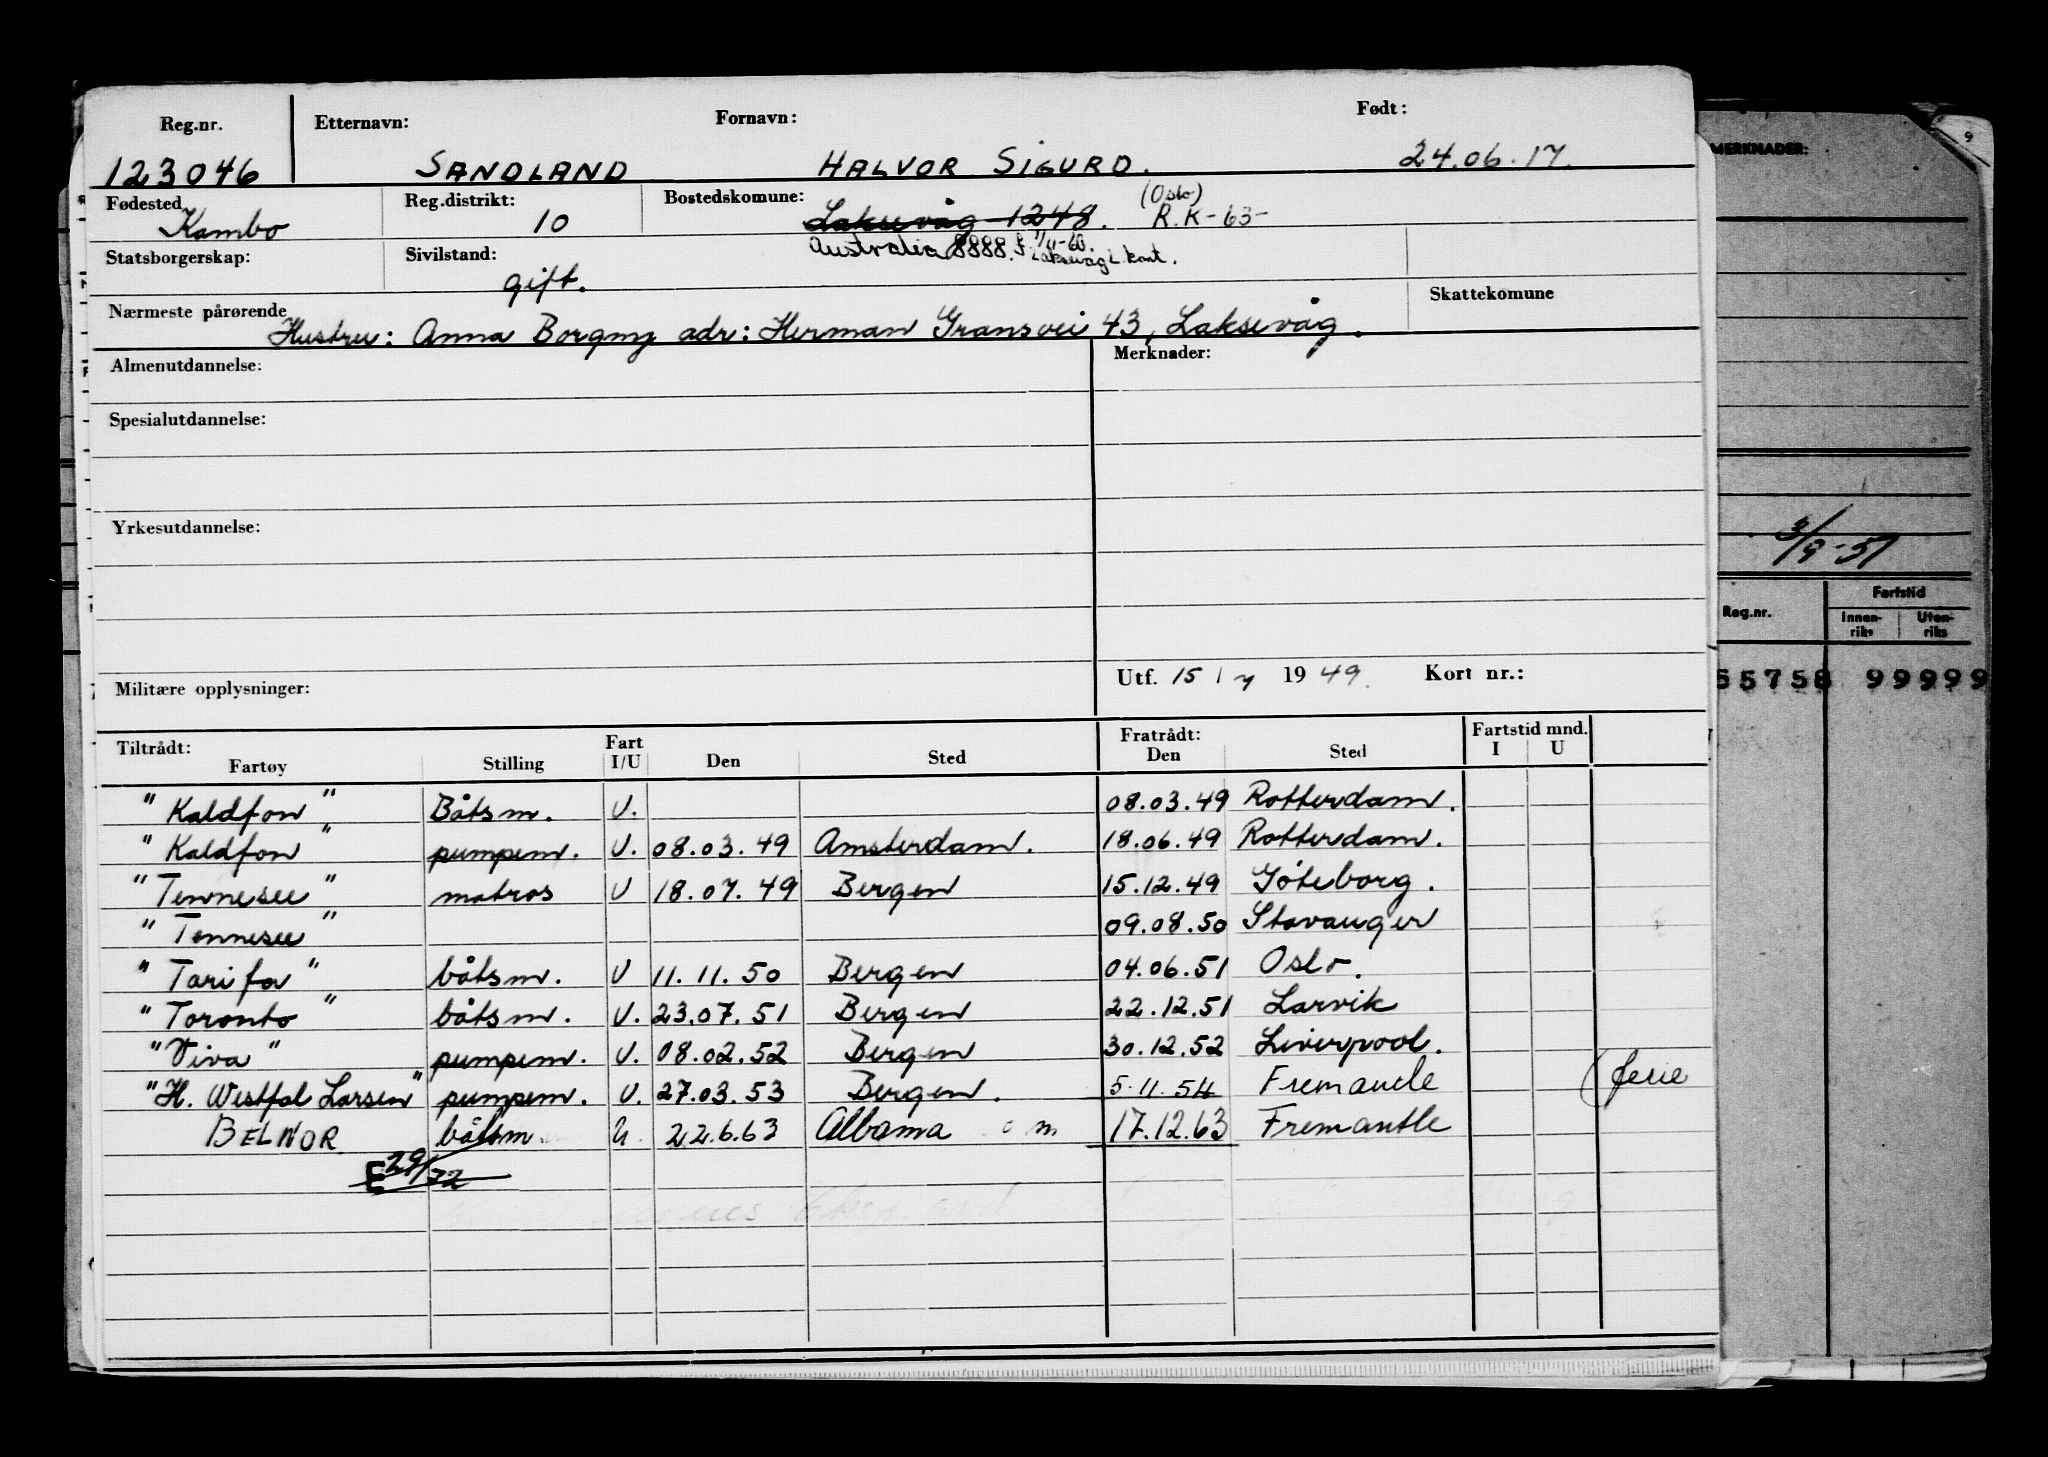 Reg.nr. Etternavn: Fornavn: Født:
123046 SANDLAND HALVOR SIGURD. 24.06.17.
Fødested Kambo Reg.distrikt: 10 Bostedskomune: Laksevåg 1248. (Oslo) R.K-63-
Australia 8888. 1/11-60. Laksevåg L.kont.
Statsborgerskap: Sivilstand: gift.
Nærmeste pårørende Skattekomune
Hustru: Anna Borgny adr: Herman Gransvei 43, Laksevåg.
Almenutdannelse: Merknader:
Spesialutdannelse:
Yrkesutdannelse:
Militære opplysninger: Utf. 15/7 1949. Kort nr.:
Tiltrådt: Fart Fratrådt: Fartstid mnd.
Fartøy Stilling I/U Den Sted Den Sted I U
"Kaldfon" Båtsm. U. 08.03.49 Rotterdam.
"Kaldfon" pumpem. U. 08.03.49 Amsterdam. 18.06.49 Rotterdam.
"Tennesee" matros U 18.07.49 Bergen 15.12.49 Göteborg.
"Tennesee" 09.08.50 Stavanger
"Tarifa" båtsm. U 11.11.50 Bergen 04.06.51 Oslo.
"Toronto" båtsm. U. 23.07.51 Bergen 22.12.51 Larvik
"Viva" pumpem. U. 08.02.52 Bergen 30.12.52 Liverpool.
"H. Westfal Larsen" pumpem. U. 27.03.53 Bergen. 5.11.54 Fremantle (ferie
BELNOR båtsm U. 22.6.63 Albama 17.12.63 Fremantle
E 29/72
9
MERKNADER:
3/9-51
Reg.nr. Fartstid
Innen-riks Uten-riks
55758 99999